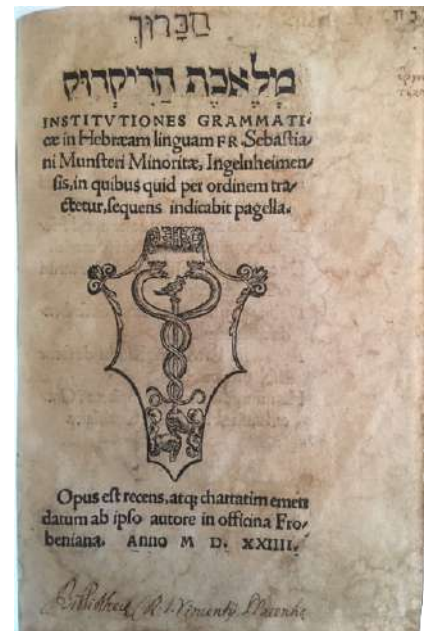 מְלֶאכֶת הַדִּיקְדּוּק
INSTITVTIONES GRAMMATI-
cæ in Hebræam linguam FR. Sebastia-
ni Munsteri Minoritæ, Ingelnheimen-
sis, in quibus quid per ordinem tra-
ctetur, sequens indicabit pagella.
Opus est recens, atq; chartatim emen
datum ab ipso autore in officina Fro-
beniana. Anno M D. XXIIII.